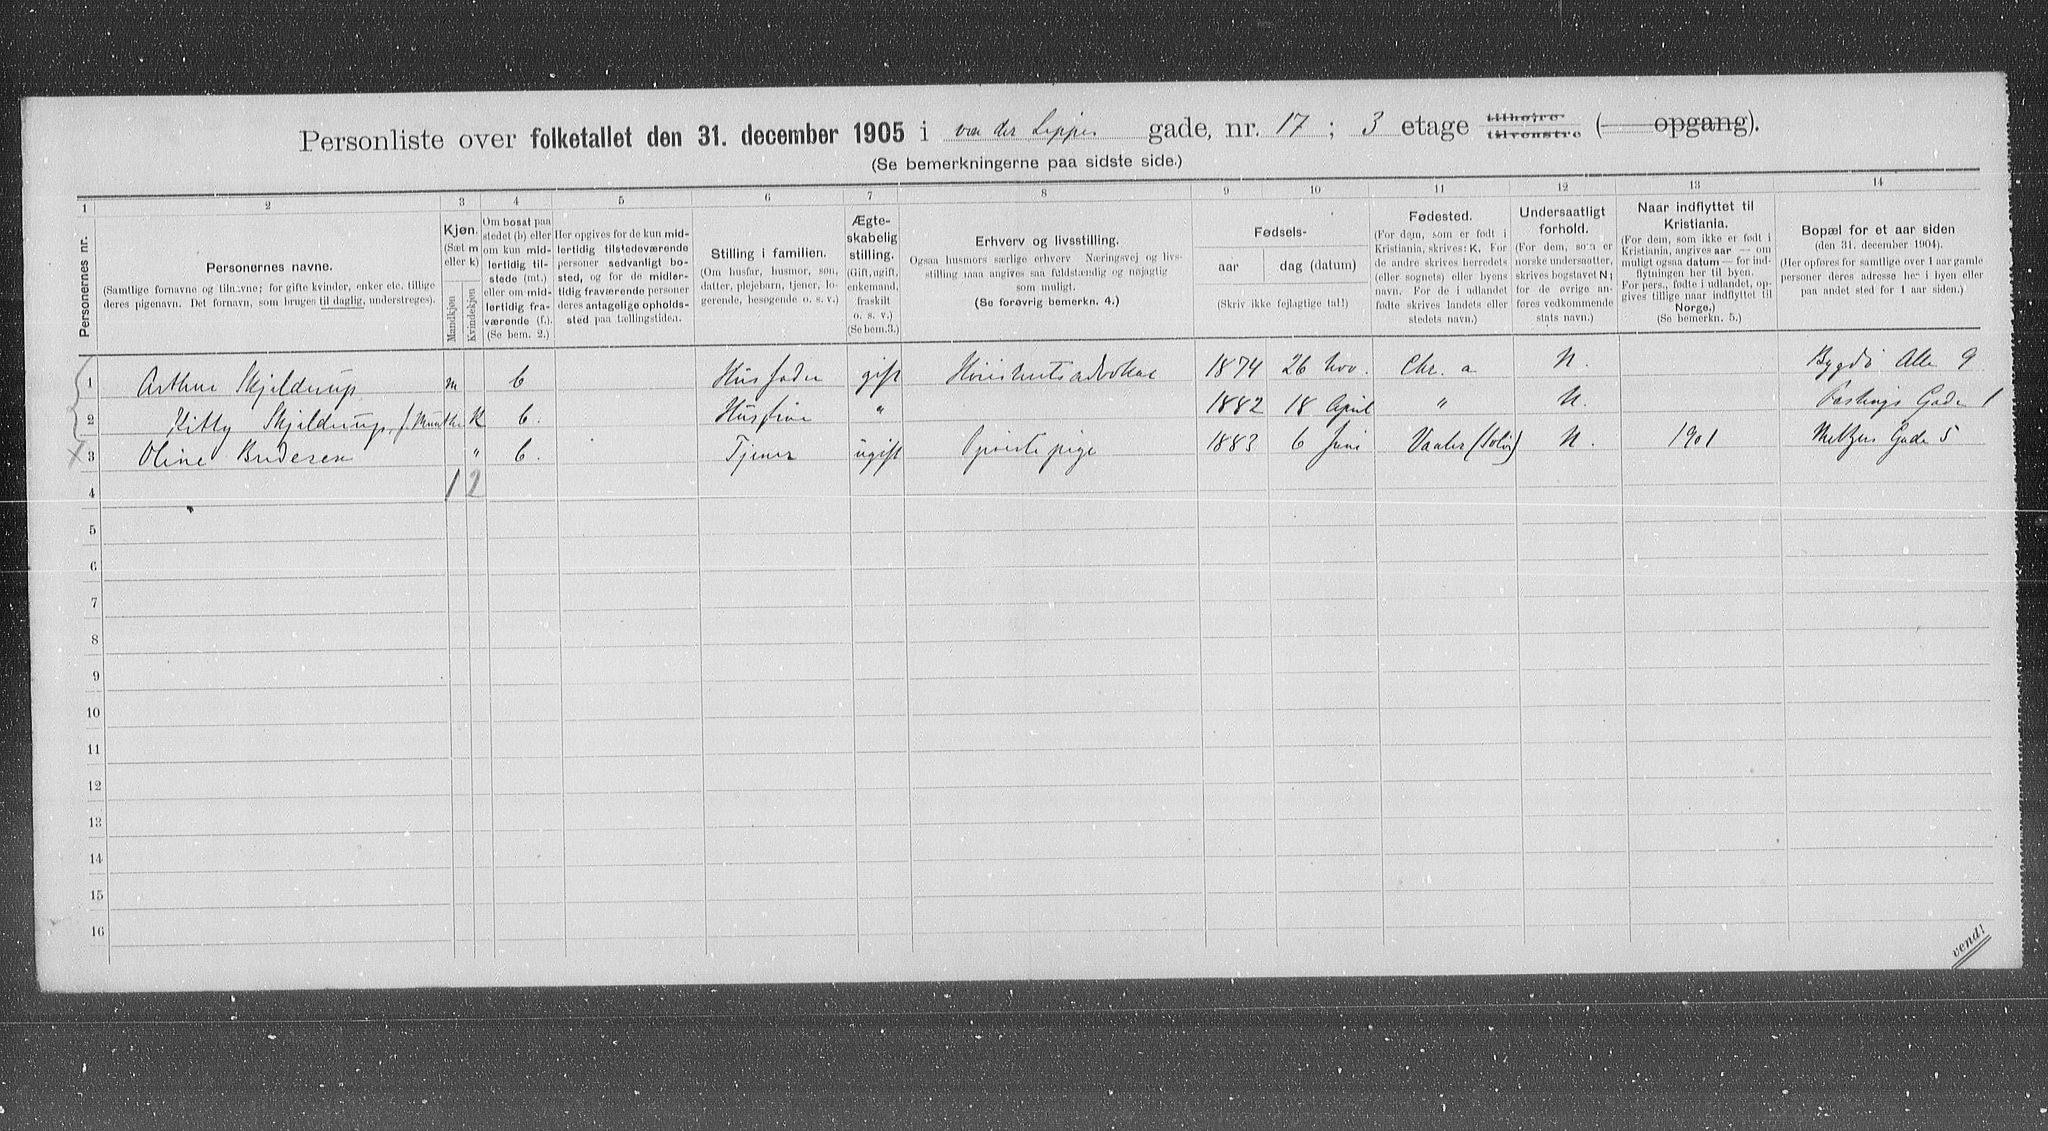 Personliste over folketallet den 31. december 1905 i van der Lippes gade, nr. 17 ; 3 etage tilhøire tilvenstre ( opgang).
(Se bemerkningerne paa sidste side.)
1 2 3 4 5 6 7 8 9 10 11 12 13 14
Personernes nr.
Personernes navne.
(Samtlige fornavne og tilnavne; for gifte kvinder, enker etc. tillige
deres pigenavn. Det fornavn, som bruges til daglig, understreges).
Kjøn.
(Sæt m
eller k)
Mandkjøn
Kvindekjøn
Om bosat paa
stedet (b) eller
om kun mid-
lertidig til-
stede (mt.)
eller om mid-
lertidig fra-
værende (f.).
(Se bem. 2.)
Her opgives for de kun mid-
lertidig tilstedeværende
personer sedvanlig bo-
sted, og for de midler-
tidig fraværende personer
deres antagelige opholds-
sted paa tællingstiden.
Stilling i familien.
(Om husfar, husmor, søn,
datter, plejebarn, tjener, lo-
gerende, besøgende o. s. v.)
Ægte-
skabelig
stilling.
(Gift, ugift,
enkemand,
fraskilt
o. s. v.)
(Se bem.3.)
Erhverv og livsstilling.
Ogsaa husmors særlige erhverv Næringsvej og livs-
stilling maa angives saa fuldstændig og nøjagtig
som muligt.
(Se forøvrig bemerkn. 4.)
Fødsels-
aar
dag (datum)
(Skriv ikke fejlagtige tal!)
Fødested.
(For dem, som er født i
Kristiania, skrives: K. For
de andre skrives herredets
(eller sognets) eller byens
navn. For de i udlandet
fødte skrives landets eller
stedets navn.)
Undersaatligt
forhold.
(For dem, som er
norske undersaatter,
skrives bogstavet N;
for de øvrige an-
føres vedkommende
stats navn.)
Naar indflyttet til
Kristiania.
(For dem, som ikke er født i
Kristiania, angives aar — om
muligt ogsaa datum — for ind-
flytningen her til byen.
For pers., fødte i udlandet, op-
gives tillige naar indflyttet til
Norge.)
(Se bemerkn. 5.)
Bopæl for et aar siden
(den 31. december 1904).
(Her opføres for samtlige over 1 aar gamle
personer deres adresse her i byen eller
paa andet sted for 1 aar siden.)
1 Arthur Skjelderup m b Husfader gift Høiesteretsadvokat 1874 26 Nov. Chr. a N. Bygdø Alle 9
2 Kitty Skjelderup f. Munthe K b. Hustru " 1882 18 April " N. Gade 1
3 Oline Budersen " b. Tjener ugift pige 1883 6 Juni Vaaler (Solør) N. 1901 Meltzers Gade 5
4 1 2
5
6
7
8
9
10
11
12
13
14
15
16
vend!